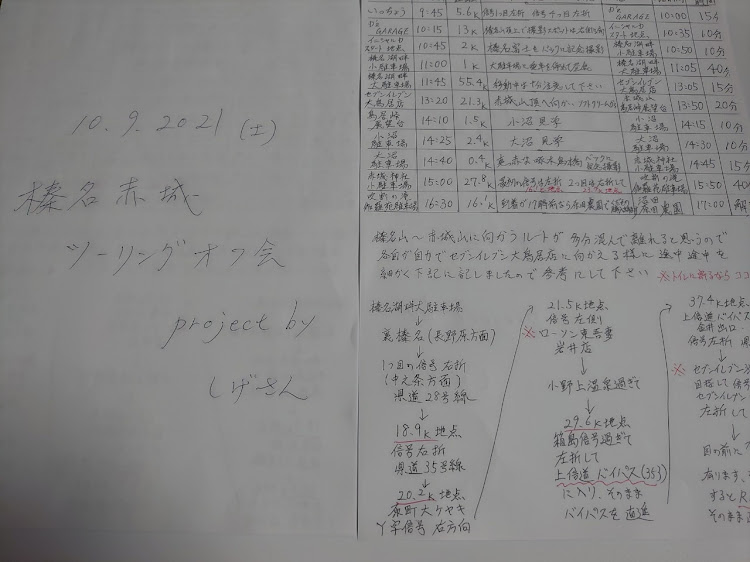 10.9.2021 (土)
榛名赤城
ツーリングオフ会
project by
しげさん
いっちょう 9:45 5.6K 信号1つ目左折 信号4つ目左折 D's GARAGE 10:00 15分
D's GARAGE 10:15 13K 10:35 10分
スタート地点 10:45 2K 榛名富士をバックに記念撮影 榛名湖畔 小駐車場 10:50 10分
榛名湖畔 小駐車場 11:00 1K 榛名湖畔 大駐車場 11:05 40分
榛名湖畔 大駐車場 11:45 55.4K 移動中は十分注意して下さい セブンイレブン 大鳥居店 13:05 15分
セブンイレブン 大鳥居店 13:20 21.3K 赤城山頂へ向かい、ソフトクリーム 13:50 20分
鳥居峠 展望台 14:10 1.5K 小沼見学 小沼 駐車場 14:15 10分
小沼 駐車場 14:25 2.4K 大沼見学 大沼 駐車場 14:30 10分
大沼 駐車場 14:40 0.4K 記念撮影 赤城神社 小駐車場 14:45 15分
赤城神社 小駐車場 15:00 27.8K 2つ目は右折して 吹割の滝 15:50 40
吹割の滝 16:30 16.1K 17:00
榛名山〜赤城山に向かうルートが多分混んで離れると思うので
各自が自力でセブンイレブン大鳥居店に向かえる様に途中途中を
細かく下記に記しましたので参考にして下さい ※トイレに寄るならココ
榛名湖畔大駐車場
↓
裏榛名(長野原方面)
↓
1つ目の信号右折
(中之条方面)
県道28号線
↓
18.9K地点
信号右折
県道35号線
↓
20.2K地点
原町大ケヤキ
Y字信号右方向
21.5K地点
信号左側
※ローソン東吾妻
岩井店
↓
小野上温泉過ぎて
↓
29.6K地点
箱島信号過ぎて
左折して
上信道バイパス(353)
に入り、そのまま
バイパスを直進
37.4K地点
上信道バイパス
金井出口
信号左折
↓
※セブンイレブン
目指して信号
セブンイレブン
左折して
↓
目の前に
有ります、
すると R
そのまま